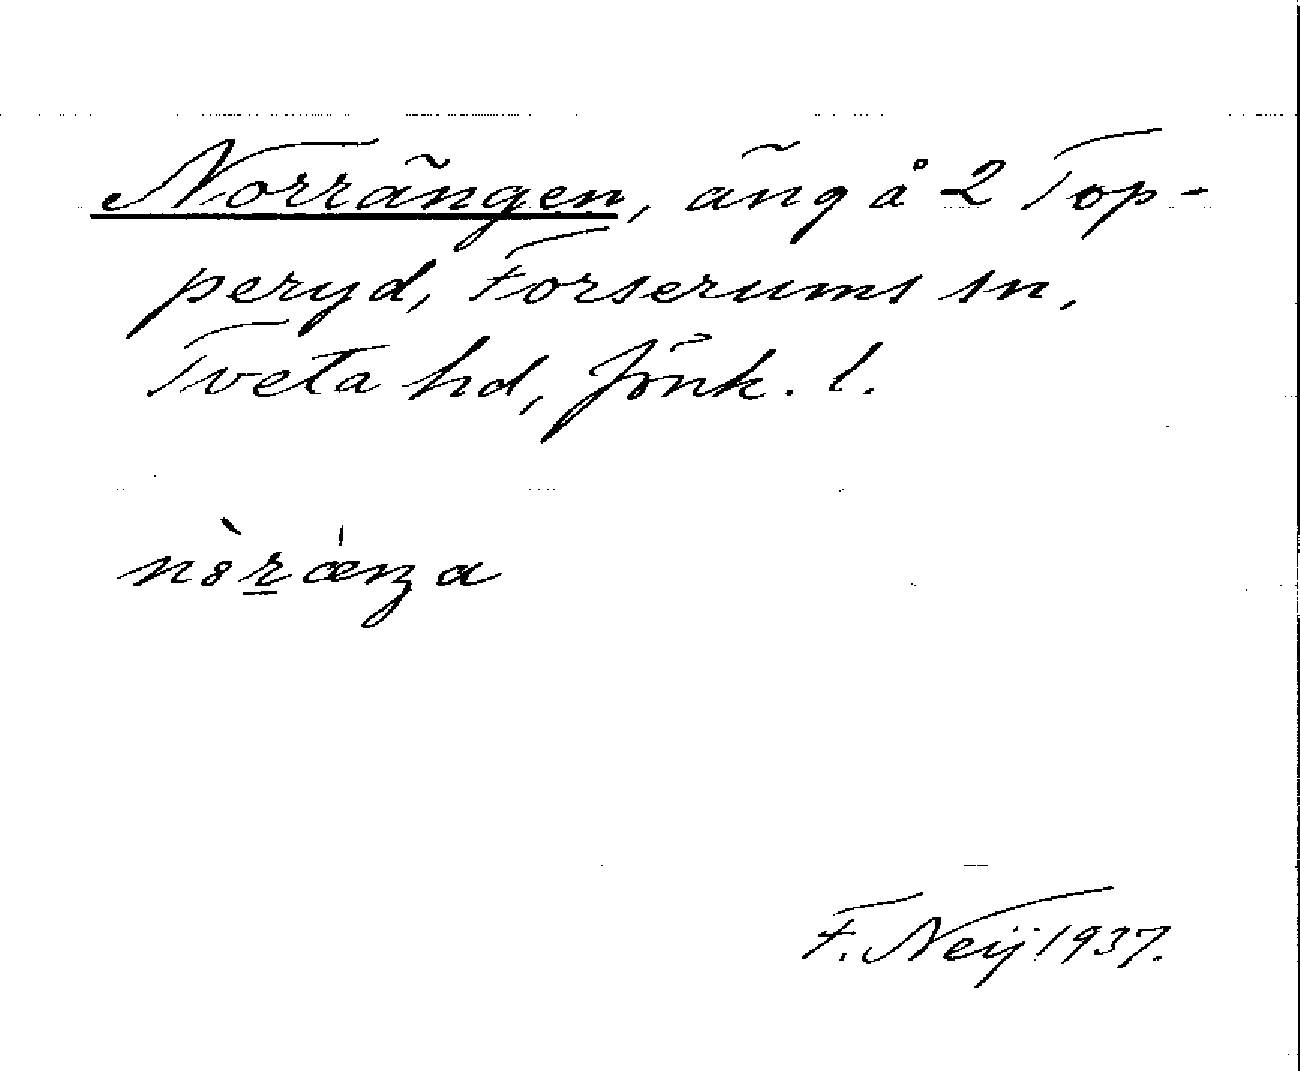 Norrängen, äng å 2 Top-
peryd, Forserums sn,
Tveta hd, Jönk. l.
F. Neij 1937.